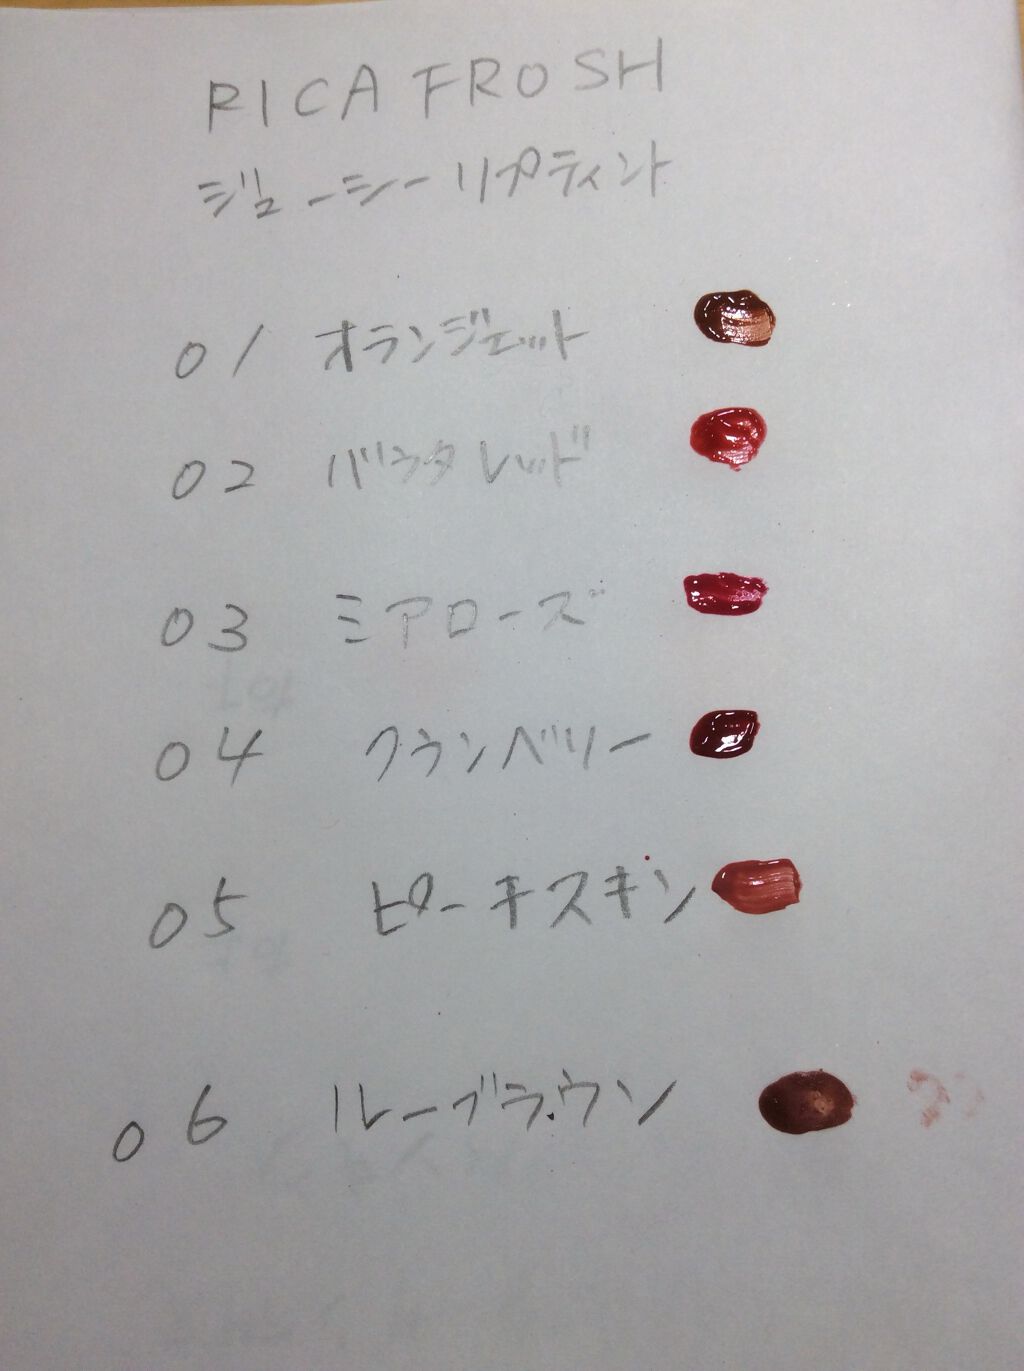 RICA FROSH
ジューシーリプティント
01 オランジェット
02 バウタレッド
03 ミアローズ
04 クランベリー
05 ピーチスキン
06 ルーブラウン